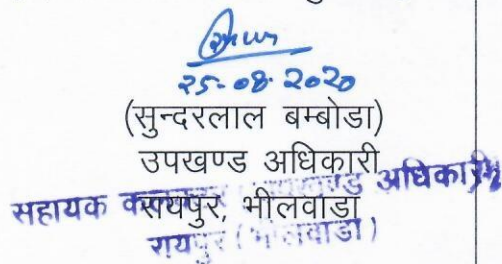 25-08-2020
(सुन्दरलाल बम्बोडा)
उपखण्ड अधिकारी
रायपुर, भीलवाडा
सहायक कलक्टर उपखण्ड अधिकारी
रायपुर (भीलवाडा)